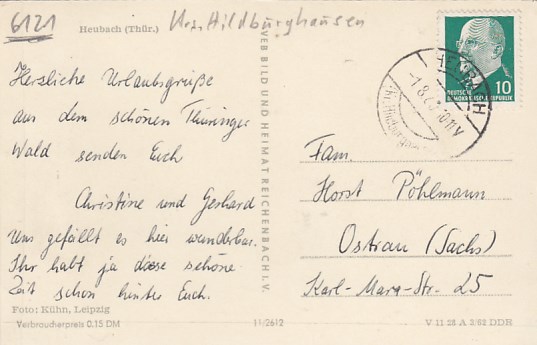 6121
Heubach (Thür.)
Krs. Hildburghausen
Herzliche Urlaubsgrüße
aus dem schönen Thüringer
Wald senden Euch
Christine und Gerhard
Uns gefällt es hier wunderbar.
Ihr habt ja diese schöne
Zeit schon hinter Euch.
Foto: Kühn, Leipzig
Verbraucherpreis 0.15 DM
VEB BILD UND HEIMAT REICHENBACH I. V.
11/2612
HEUBACH
10
DEUTSCHE
DEMOKRATISCHE REPUBLIK
Fam.
Horst Pöhlmann
Ostrau (Sachs)
Karl-Marx-Str. 25
V 11 28 A 2/62 DDR